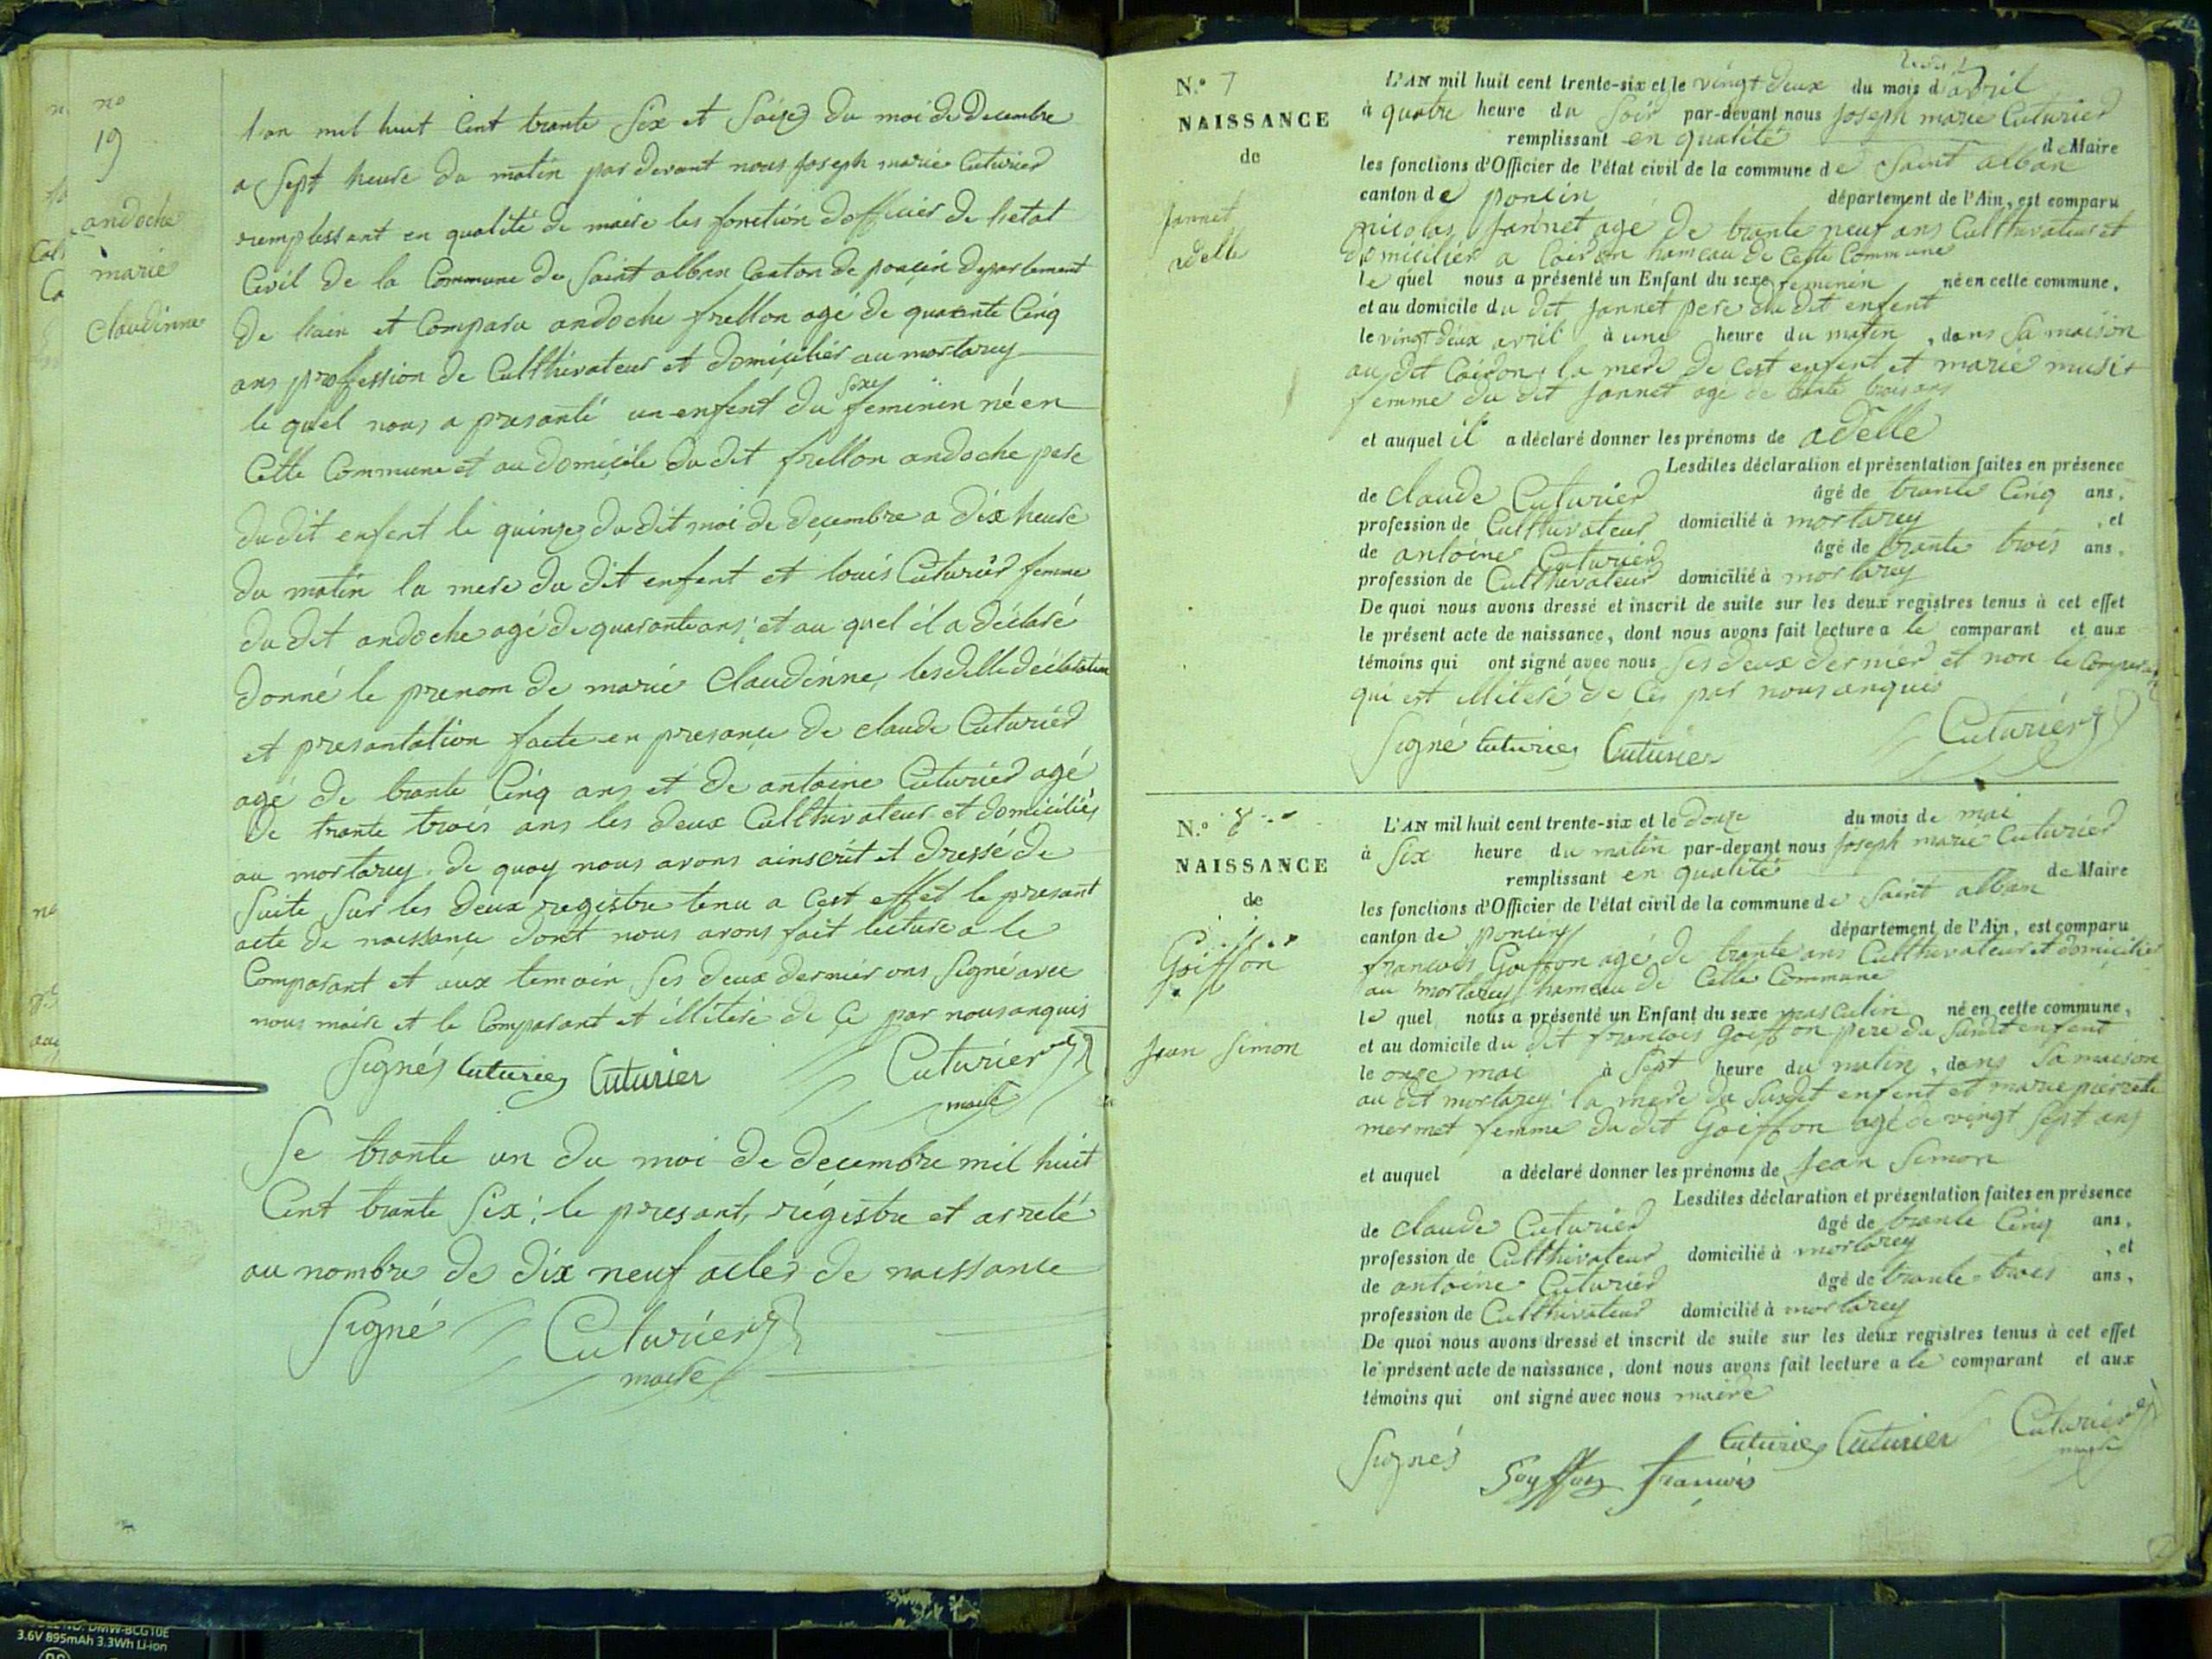 no
19
andoche
marie
Claudinne
l'an mil huit Cent trante Six et Saize du moi de Decembre
a Sept heure du matin par devant nous joseph marie Cuturier
remplissant en qualité de maire les fonction dofficier de letat
Civil de la Commune de Saint alban Canton de poncin departement
de lain et Comparu andoche frellon agé de quarante Cinq
ans proffession de Culthivateur et domicilier au mortarey
le quel nous a presanté un enfent du sexe feminin né en
Cette Commune et au domicile du dit frellon andoche pere
du dit enfent le quinze du dit moi de decembre a dix heure
du matin la mere du dit enfent et louis Cuturier femme
du dit andoche agé de quarante ans; et au quel il a déclaré
donné le prenom de marie Claudinne, lesditte déclaration
et presantation faite en presance de claude Cuturier
agé de trante Cinq ans et de antoine Cuturier agé
de trante trois ans les deux Culthivateur et domiciliés
au mortarey. de quoy nous avons ainscrit et dressé de
Suite Sur les deux registre tenu a Cest effet le presant
acte de naissance dont nous avons fait lecture a le
Comparant et aux temoin Ses deux dernier ons Signé avec
nous maire et le Comparant et illiteré de Ce par nous anquis
Signés Cuturier Cuturier Cuturier
maire
Se trante un du moi de decembre mil huit
Cent trante Six; le presant, régistre et arreté
au nombre de dix neuf actes de naissance
Signé Cuturier
maire
N.º 7
NAISSANCE
de
Jannet
adelle
L'AN mil huit cent trente-six et le vingt deux du mois d'avril
à quatre heure du Soir par-devant nous joseph marie Cuturier
remplissant en qualité de Maire
les fonctions d'Officier de l'état civil de la commune de Saint alban
canton de poncin département de l'Ain, est comparu
nicolas Jannet agé de trante neuf ans Culthivateur et
domicilier a Coiron hameau de Cette Commune
le quel nous a présenté un Enfant du sexe feminin né en cette commune,
et au domicile du dit Jannet pere du dit enfent
le vingt deux avril à une heure du matin, dans Sa maison
au dit Coiron; la mere de Cest enfent et marie musit
femme du dit Jannet agé de trante trois ans
et auquel il a déclaré donner les prénoms de adelle
Lesdites déclaration et présentation faites en présence
de claude Cuturier âgé de trante Cinq ans,
profession de Culthivateur domicilié à mortarey, et
de antoine Cuturier âgé de trante trois ans,
profession de Culthivateur domicilié à mortarey
De quoi nous avons dressé et inscrit de suite sur les deux registres tenus à cet effet
le présent acte de naissance, dont nous avons fait lecture a le comparant et aux
témoins qui ont signé avec nous Ses deux dernier et non le Comparant
qui est illiteré de Ces par nous anquis
Signé Cuturier Cuturier Cuturier
N.º 8
NAISSANCE
de
Goiffon
Jean Simon
L'AN mil huit cent trente-six et le douze du mois de mai
à Six heure du matin par-devant nous joseph marie Cuturier
remplissant en qualité de Maire
les fonctions d'Officier de l'état civil de la commune de Saint alban
canton de poncin département de l'Ain, est comparu
francois Goiffon agé de trante ans Culthivateur et domicilier
au mortarey hameau de Cette Commune
le quel nous a présenté un Enfant du sexe masculin né en cette commune,
et au domicile du dit francois Goiffon pere du Susdit enfent
le onze mai à Sept heure du matin, dans Sa maison
au dit mortarey; la mere du Susdit enfent et marie pierrette
mermet femme du dit Goiffon agé de vingt Sept ans
et auquel a déclaré donner les prénoms de Jean Simon
Lesdites déclaration et présentation faites en présence
de claude Cuturier âgé de trante Cinq ans,
profession de Culthivateur domicilié à mortarey, et
de antoine Cuturier âgé de trante trois ans,
profession de Culthivateur domicilié à mortarey
De quoi nous avons dressé et inscrit de suite sur les deux registres tenus à cet effet
le présent acte de naissance, dont nous avons fait lecture a le comparant et aux
témoins qui ont signé avec nous maire
Signés Cuturier Cuturier Cuturier
maire
Goyffon francois
DMW-BCG10E
3.6V 895mAh 3.3Wh Li-ion